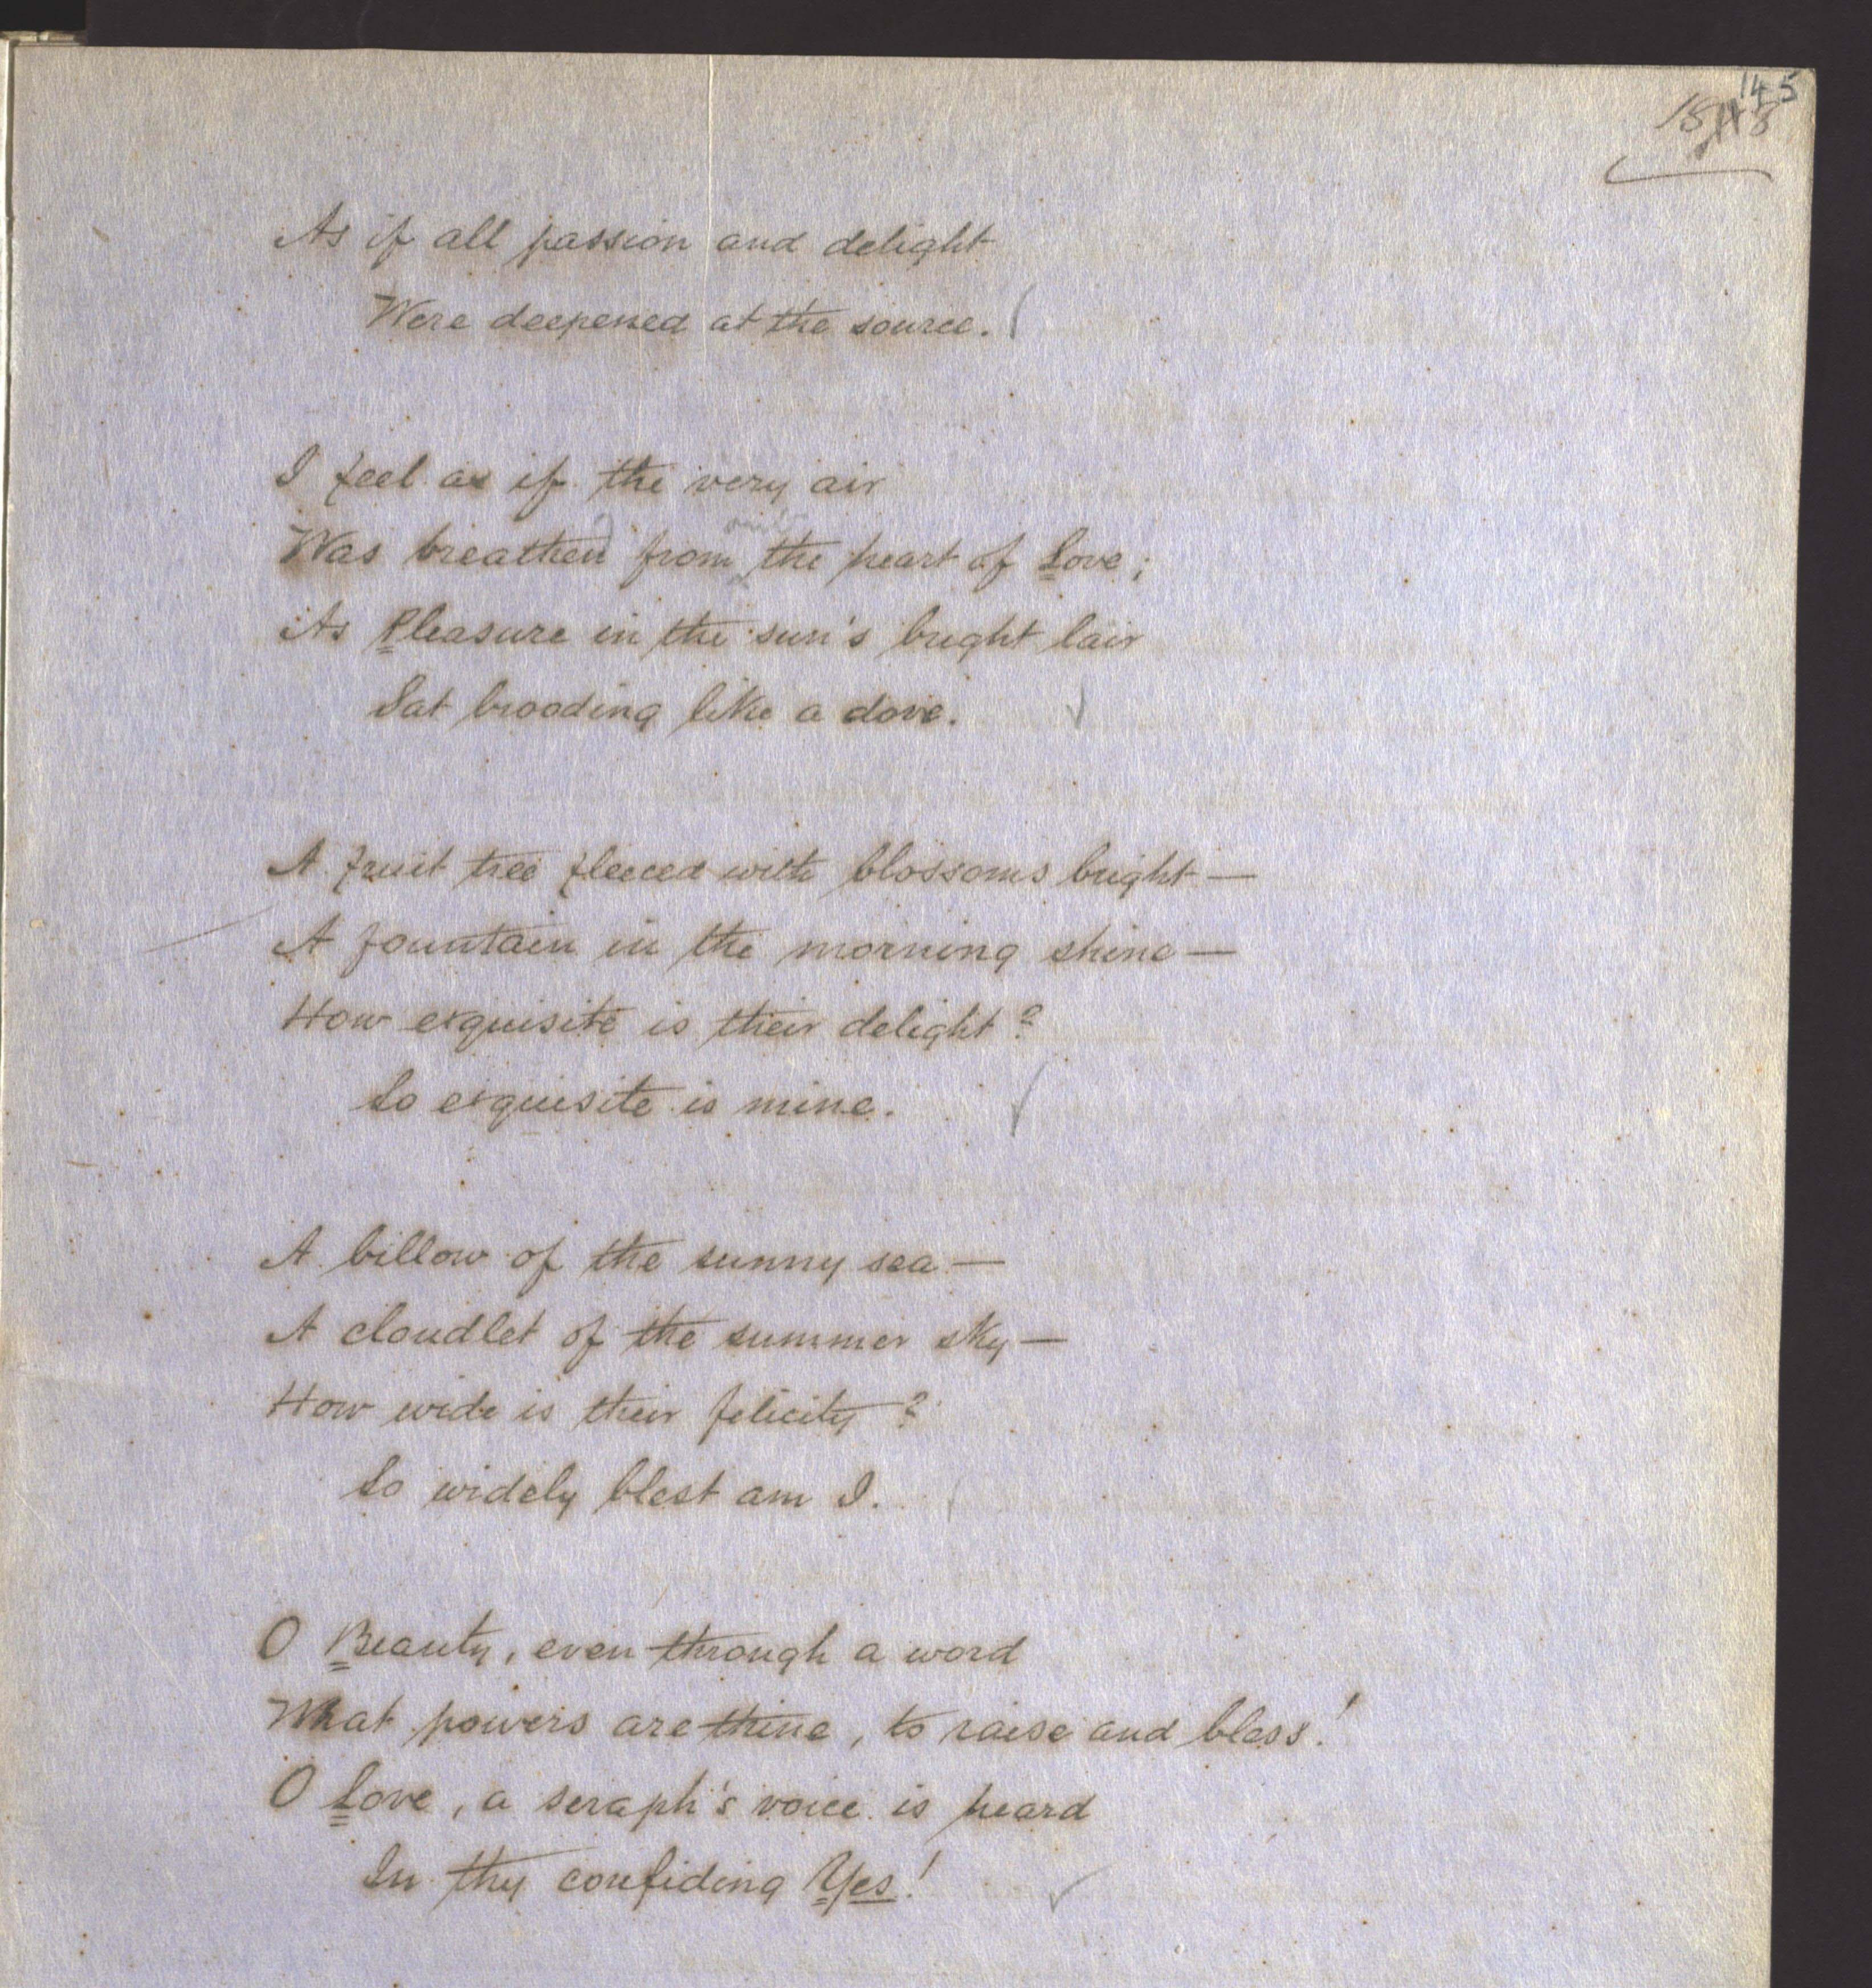 145
As if all passion and delight
Were deepened at the source.
I feel as if the very air
Was breathed from the heart of Love;
As Pleasure in the sun's bright lair
Sat brooding like a dove.
A fruit tree fleeced with blossoms bright —
A fountain in the morning shine —
How exquisite is their delight?
So exquisite is mine.
A billow of the sunny sea —
A cloudlet of the summer sky —
How wide is their felicity?
So widely blest am I.
O Beauty, even through a word
What powers are thine, to raise and bless!
O Love, a seraph's voice is heard
In thy confiding Yes!